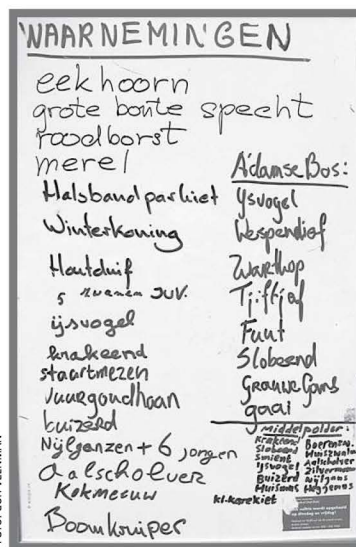 WAARNEMINGEN
eekhoorn
grote bonte specht
roodborst
merel
Halsbandparkiet
Winterkoning
Houtduif
5 zwanen JUV.
ijsvogel
krakeend
staartmezen
vuurgoudhaan
buizerd
Nijlganzen + 6 jongen
Aalscholver
Kokmeeuw
Boomkruiper
A'damse Bos:
Ijsvogel
Wespendief
Zwarthop
Tjiftjaf
Fuut
Slobeend
Grauwe Gans
gaai
Middelpolder:
Krakeend
Slobeend
Smient
IJsvogel
Buizerd
Huismus
kl. karekiet
Boerenzw.
Huiszwaluw
Aalscholver
Zilvermeeuw
Nijlgans